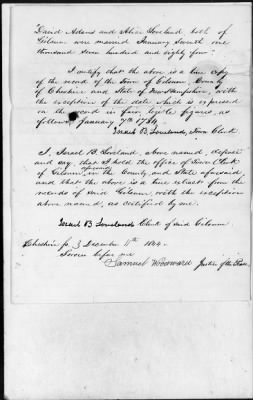 David Adams and Abiar Loveland both of
Gilsum were married January Seventh one
thousand seven hundred and eighty four.
I certify that the above is a true copy
of the record of the Town of Gilsum, County
of Cheshire and State of New Hampshire, with
the exception of the date which is expressed
on the record in fair legible figures, as
follows January 7th 1784.
Israel B. Loveland, Town Clerk
I, Israel B. Loveland, above named, depose
and say, that I hold the office of Town Clerk
of Gilsum, in the County and State aforesaid,
and that the above is a true extract from the
records of said Gilsum, with the exception
above named, as certified by me.
Israel B Loveland Clerk of said Gilsum.
Cheshire ss. December 11th
Sworn before me
Samuel Woodward Justice of the Peace